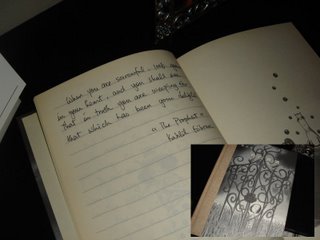 When you are sorrowful - look again
in your heart, and you shall see
that in truth you are weeping for
that which has been your delight
"The Prophet"
Kahlil Gibran